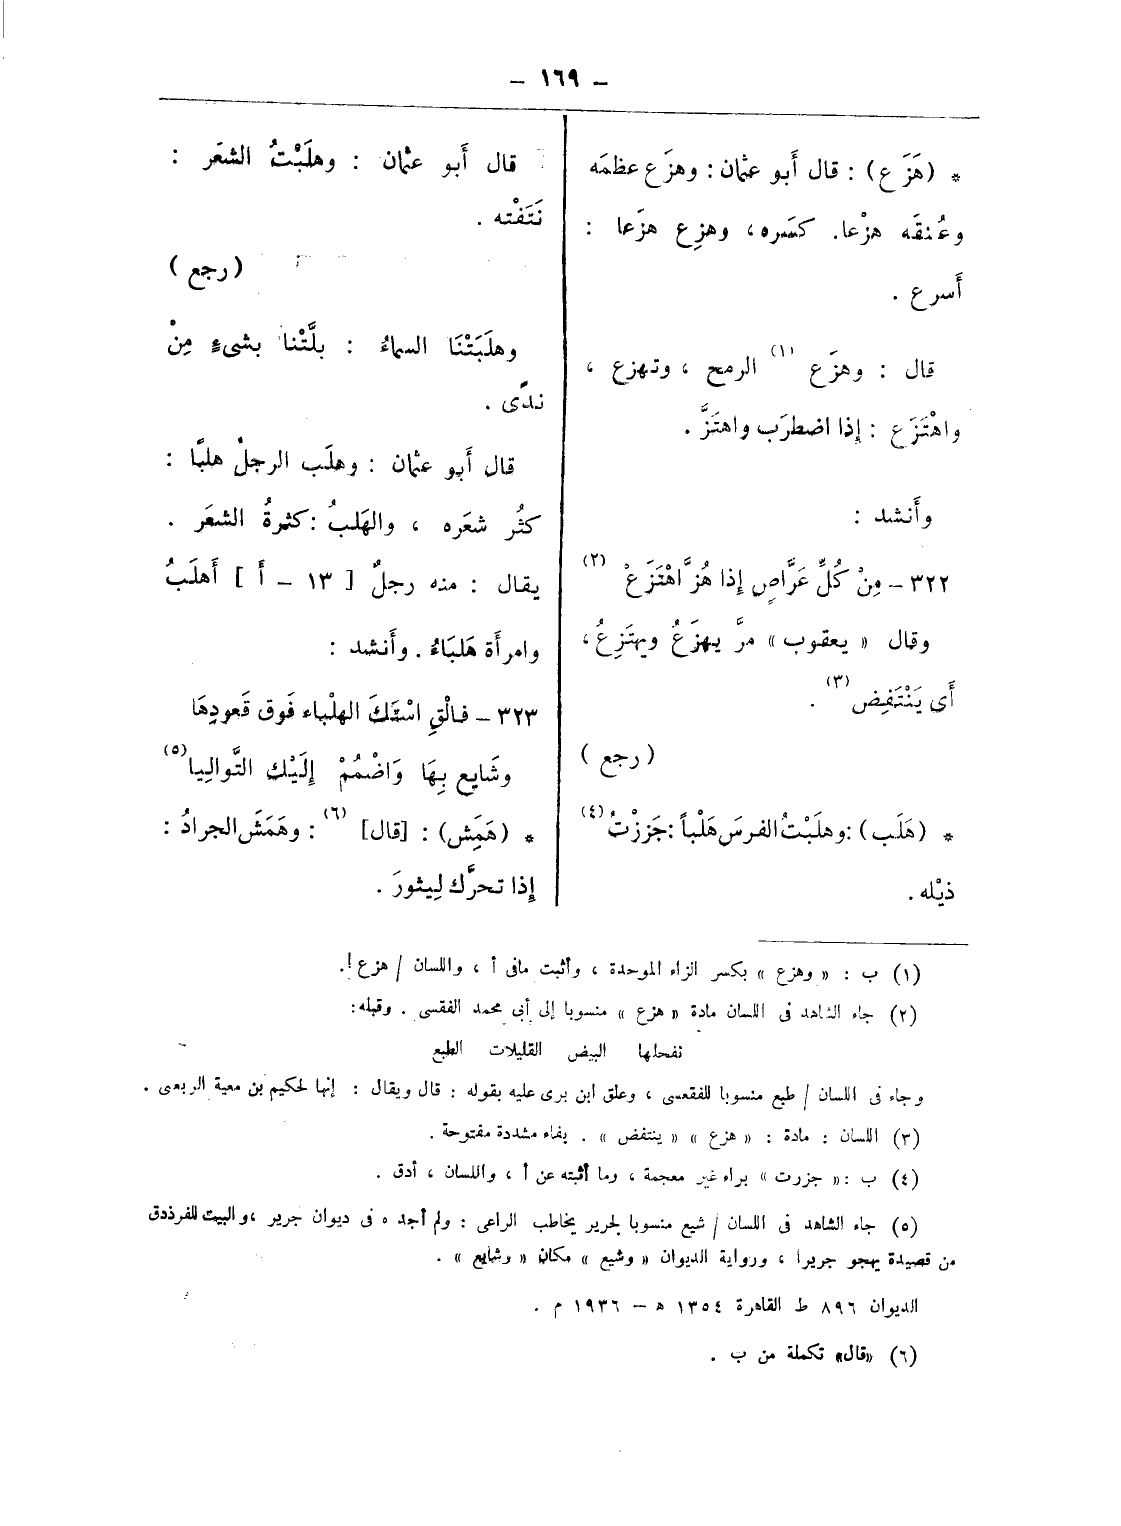 – ١٦٩ –
* (هَزَع) : قال أَبو عثمان : وهزَع عظمَه
وعُنقَه هزْعا. كسَره، وهزِع هزَعا :
أَسرع .
قال : وهزَع (١) الرمح ، وتهزع ،
واهْتَزَع : إِذا اضطرَب واهتَزَّ .
وأَنشد :
٣٢٢ – مِنْ كُلِّ عَرَّاصٍ إِذا هُزَّ اهْتَزَعْ (٢)
وقال « يعقوب » مرَّ يهزَعُ ويهتَزِعُ ،
أَى يَنْتَفِض (٣) .
( رجع )
* (هَلَب) : وهلَبْتُ الفرسَ هَلْباً : جَززْتُ (٤)
ذيْله .
قال أَبو عثمان : وهلَبْتُ الشعَر :
نَتَفْته .
( رجع )
وهلَبَتْنَا السماءُ : بلَّتْنا بشىءٍ مِنْ
ندًى .
قال أَبو عثمان : وهلَب الرجلْ هلبًا :
كثُر شعَره ، والهَلبُ : كثرةُ الشعَر .
يقال : منه رجلٌ [ ١٣ – أَ ] أَهلَبُ
وامرأَة هَلبَاءُ . وأَنشد :
٣٢٣ – فالْقِ اسْتَكَ الهلْباء فَوق قَعودِهَا
وشَايع بِهَا وَاضْمُمْ إِلَيْك التَّوالِيا (٥)
* (هَمَش) : [قال] (٦) : وهَمَشَ الجرادُ :
إِذا تحرَّك لِيثورَ .
(١) ب : « وهزع » بكسر الزاء الموحدة ، وأثبت مافى أ ، واللسان / هزع !.
(٢) جاء الشاهد فى اللسان مادة « هزع » منسوبا إلى أبى محمد الفقسى . وقبله :
نفحلها البيض القليلات الطبع
وجاء فى اللسان / طبع منسوبا للفقعسى ، وعلق ابن برى عليه بقوله : قال ويقال : إنها لحكيم بن معية الربعى .
(٣) اللسان : مادة : « هزع » « ينتفض » . بفاء مشددة مفتوحة .
(٤) ب : « جزرت » براء غير معجمة ، وما أثبته عن أ ، واللسان ، أدق .
(٥) جاء الشاهد فى اللسان / شيع منسوبا لجرير يخاطب الراعى : ولم أجده فى ديوان جرير ، والبيت للفرذدق
من قصيدة يهجو جريرا ، ورواية الديوان « وشيع » مكان « وشايع » .
الديوان ٨٩٦ ط القاهرة ١٣٥٤ ه – ١٩٣٦ م .
(٦) «قال» تكملة من ب .